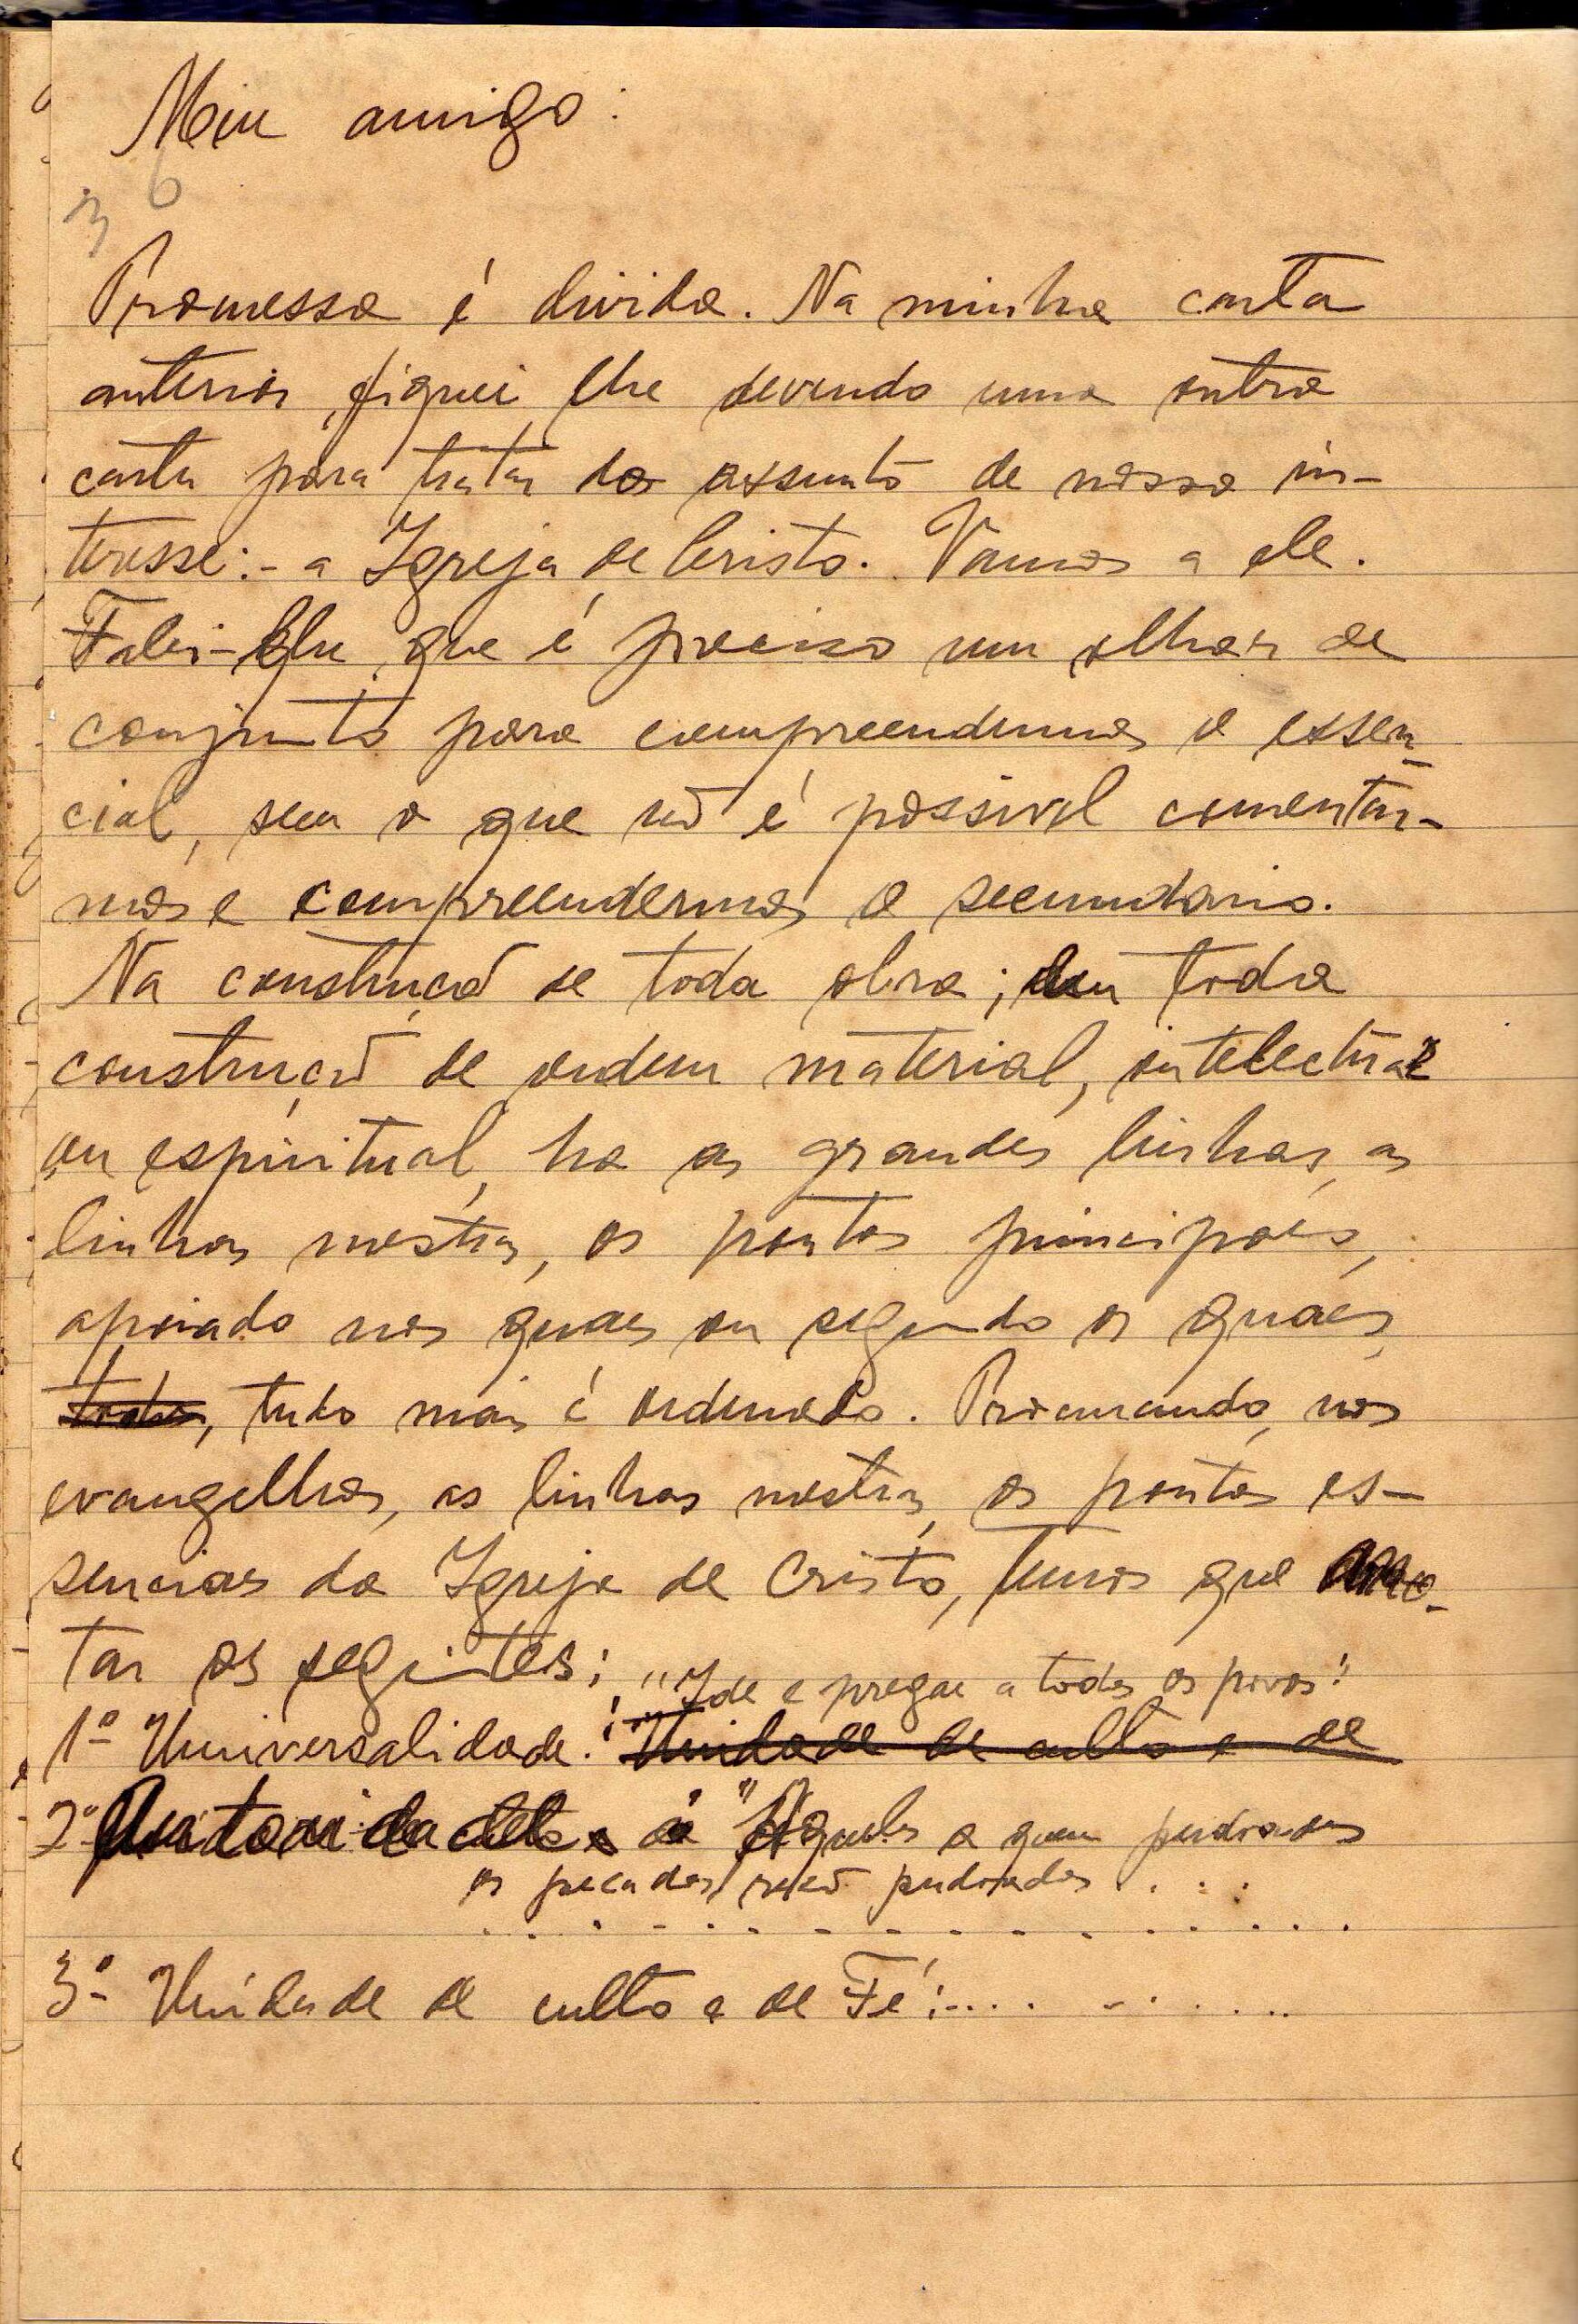 Meu amigo:
36
Promessa é divida. Na minha carta
anterior, fiquei lhe devendo uma outra
carta para tratar do assunto de nosso in-
teresse:- a Igreja de Cristo. Vamos a ele.
Falei-lhe que é preciso um olhar de
conjunto para compreendermos o essen-
cial, sem o que não é possivel comentar-
mos e compreendermos o secundario.
Na construção de toda obra; em toda
construção de ordem material, intelectual
ou espiritual, ha as grandes linhas, as
linhas mestras, os pontos principaes,
apoiado nos quaes ou segundo os quaes,
tudo mais é ordenado. Procurando, nos
evangelhos, as linhas mestras, os pontos es-
senciaes da Igreja de Cristo, temos que ano-
tar os seguintes:
"Ide e pregae a todos os povos!"
1º- Universalidade: Unidade de culto e de
2º- Autoridade "Aqueles a quem perdoardes
os pecados, serão perdoados . . . .
3º- Unidade de culto e de Fé:- . . . . . . . .